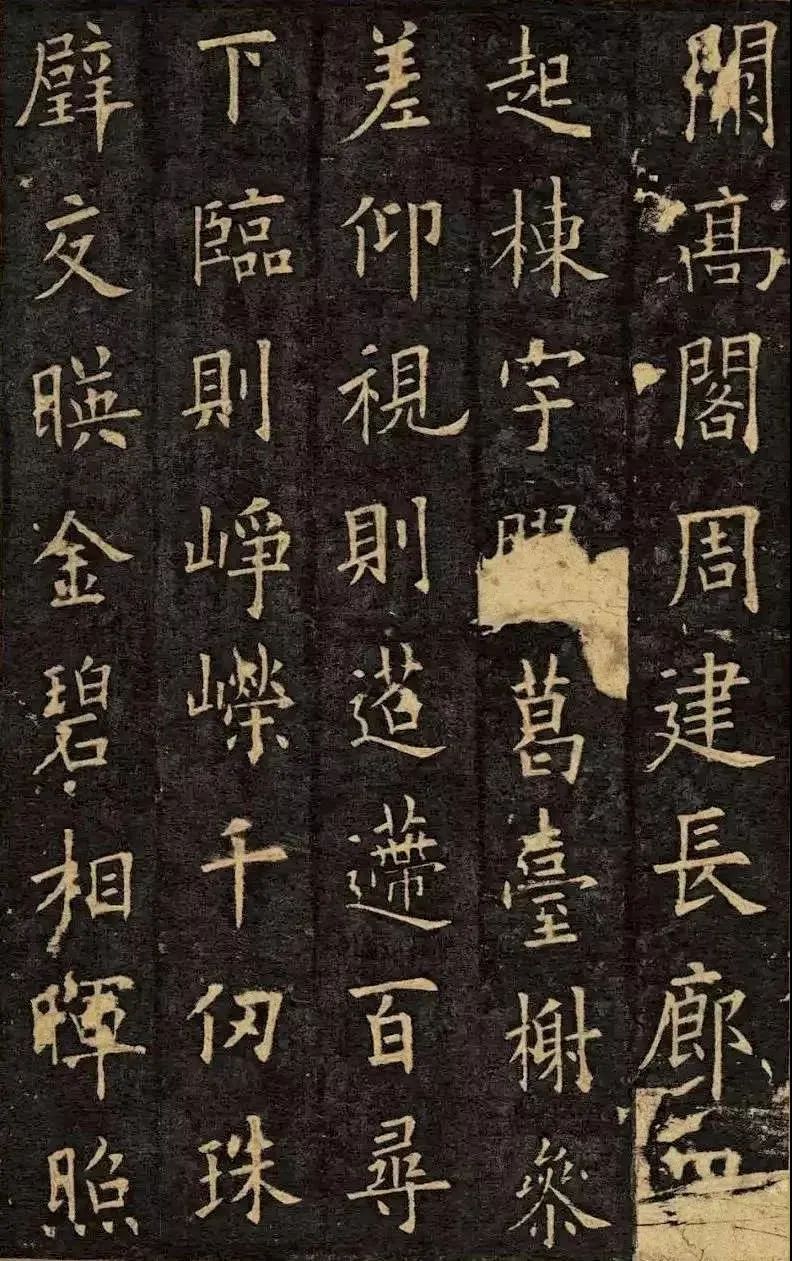 闕高閣周建長廊四
起棟宇葛臺榭參
差仰視則迢遰百尋
下臨則崢嶸千仞珠
璧交暎金碧相暉照